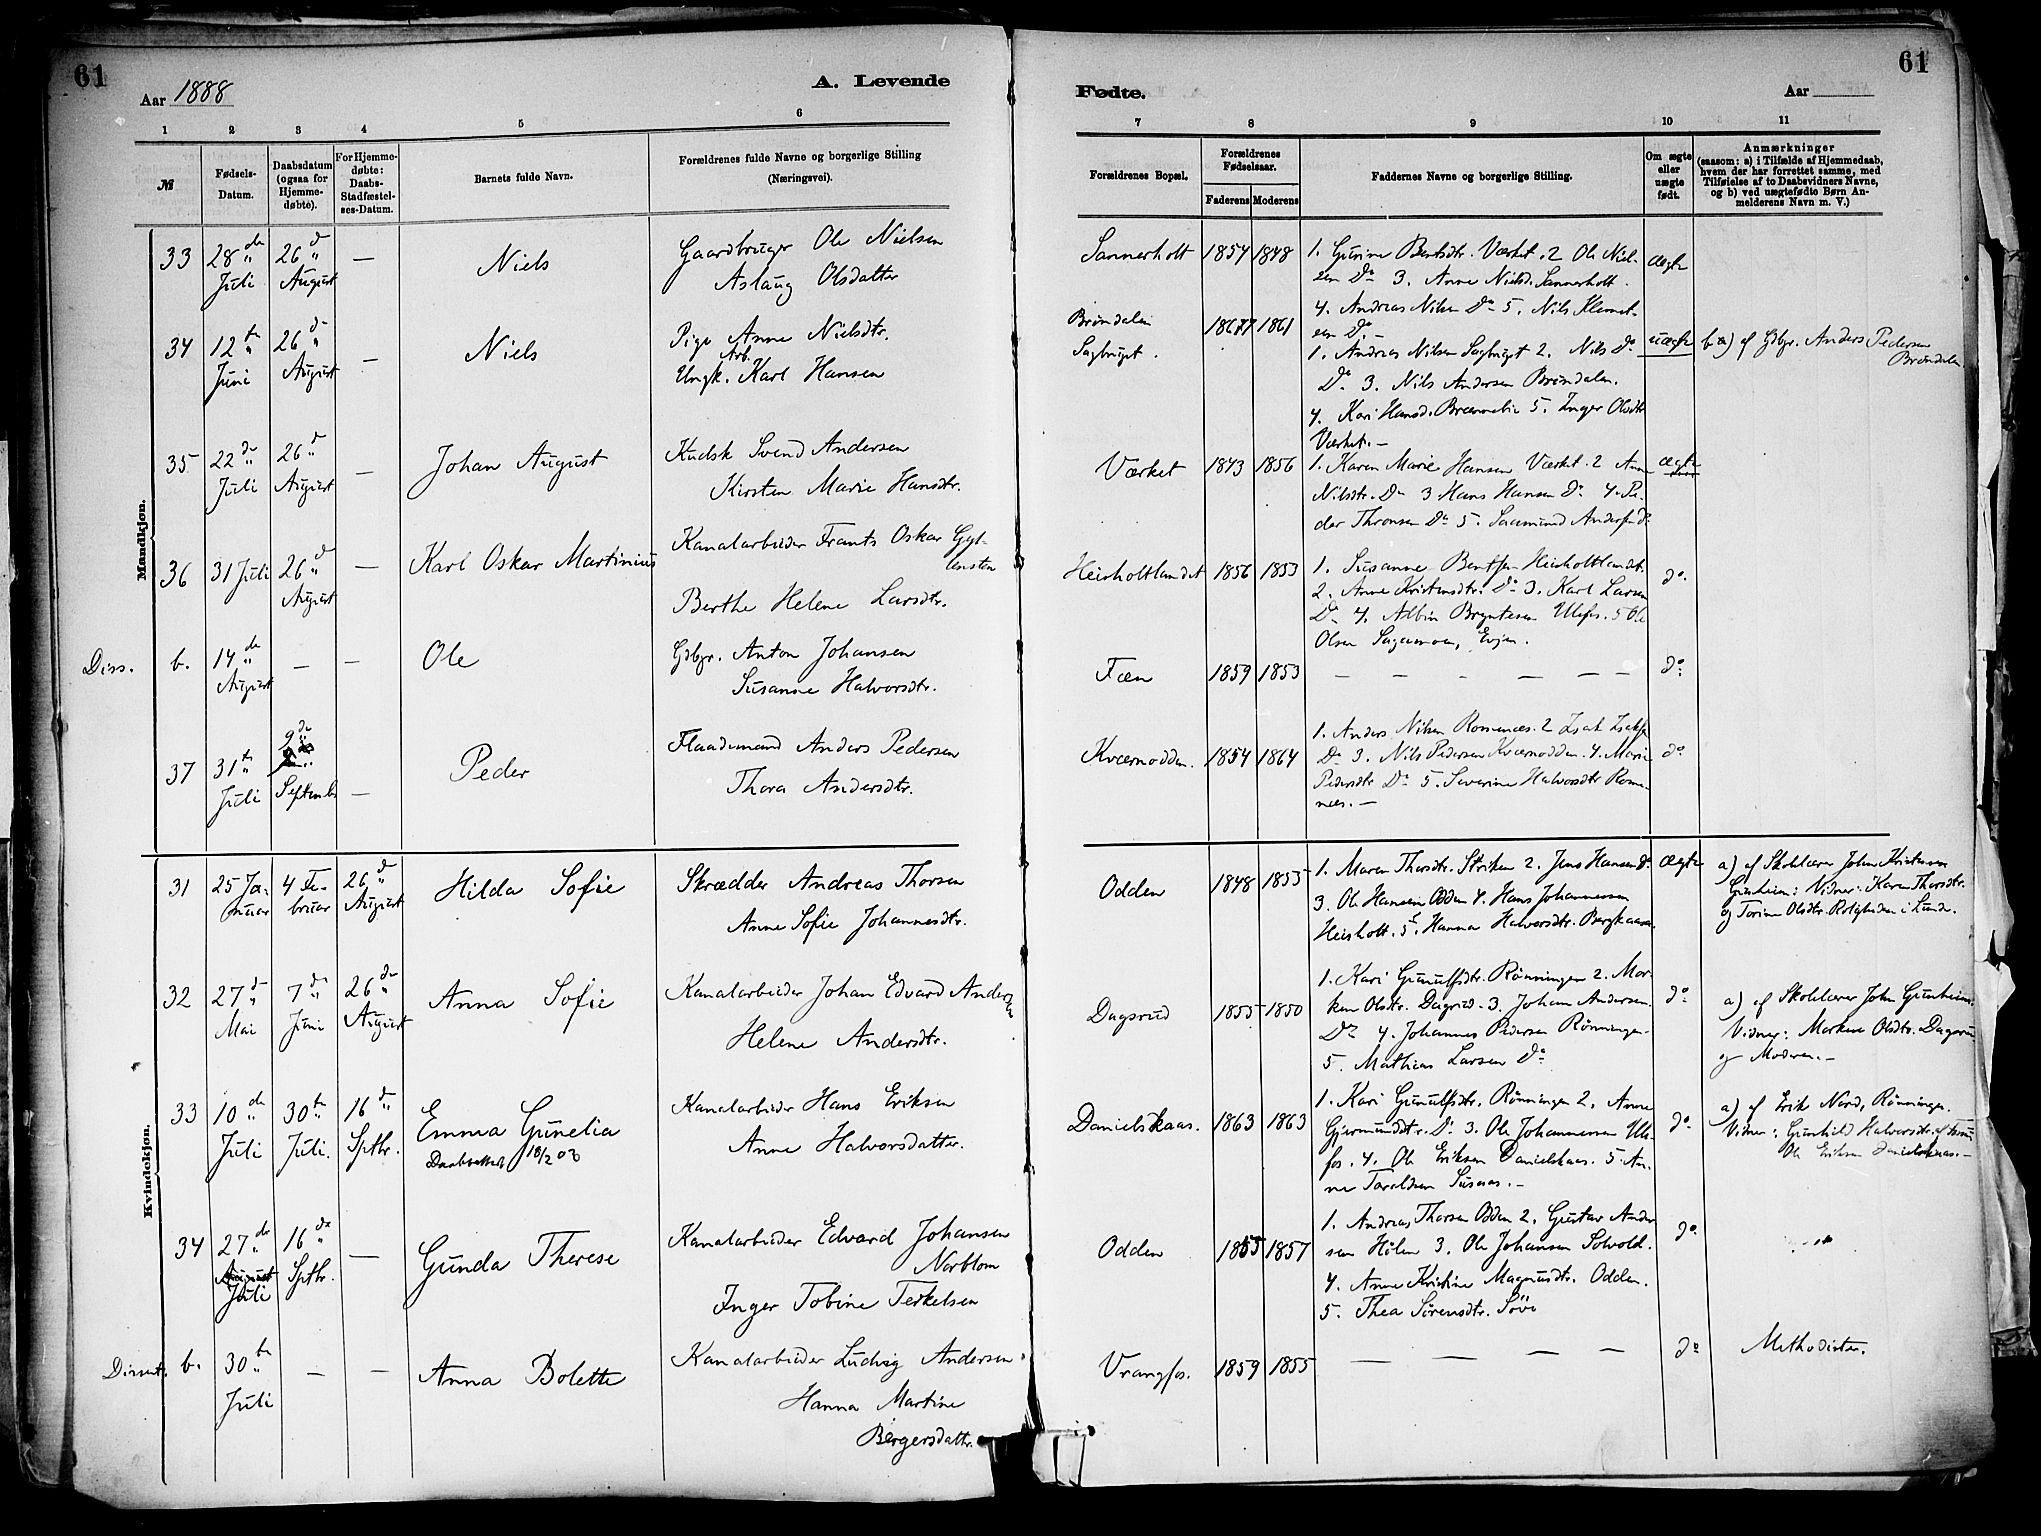 61
Aar 1888
A. Levende
1 2 3 4 5 6
№
Fødsels-
Datum.
Daabsdatum
(ogsaa for
Hjemme-
døbte).
For Hjemme-
døbte:
Daabs-
Stadfæstel-
ses-Datum.
Barnets fulde Navn.
Forældrenes fulde Navne og borgerlige Stilling
(Næringsvei).
Mandkjøn.
33 28de Juli 26d August — Niels
Gaardbruger Ole Nielsen
Aslaug Olsdatter
34 12te Juni 26d August — Niels
Pige Anne Nielsdtr.
Arb.
Ungk. Karl Hansen
35 22de Juli 26d August — Johan August
Kudsk Svend Andersen
Kirsten Marie Hansdtr.
36 31 Juli 26d August — Karl Oskar Martinius
Kanalarbeider Frants Oskar Gyl-
lensten
Berthe Helene Larsdtr.
Diss. b. 14de August — — Ole
Gdbgr. Anton Johansen
Susanne Halvorsdtr.
37 31te Juli 9de Septemb. — Peder
Flaademand Anders Pedersen
Thora Andersdtr.
Kvindekjøn.
31 25 Ja-
nuar 4 Fe-
bruar 26d August Hilda Sofie
Skrædder Andreas Thorsen
Anne Sofie Johannesdtr.
32 27d Mai 7d Juni 26de August Anna Sofie
Kanalarbeider Johan Edvard Andersen
Helene Andersdtr.
33 10de Juli 30te Juli. 16d Sptbr. Emma Gunelia
Daabsattest 18/2 03
Kanalarbeider Hans Eriksen
Anne Halvorsdatter.
34 27de August Juli 16de Sptbr. — Gunda Therese
Kanalarbeider Edvard Johansen
Norblom
Inger Tobine Terkelsen
Dissent. b. 30te Juli — — Anna Bolette
Kanalarbeider Ludvig Andersen
Hanna Martine
Børgersdattr.
61
Fødte.
Aar
7 8 9 10 11
Forældrenes Bopæl.
Forældrenes
Fødselsaar.
Faderens Moderens
Faddernes Navne og borgerlige Stilling.
Om ægte
eller
uægte
født.
Anmærkninger
(saasom: a) i Tilfælde af Hjemmedaab,
hvem der har forrettet samme, med
Tilføielse af to Daabsvidners Navne,
og b) ved uægtefødte Børn An-
melderens Navn m. V.)
Sannerholt 1854 1848
1. Gurine Berntsdtr. Værket. 2 Ole Niel-
sen Do 3. Anne Nielsd. Sannerholt.
4. Andreas Nilsen Do 5. Nils Klemet-
sen Do. —
ægte
Brøndalen
Sagbruget. 1867 1861
1. Andreas Nilsen Sagbruget 2. Nils Do
Do 3. Nils Andersen Brøndalen.
4. Kari Hansd. Brænnelie 5. Inger Olsdtr
Værket. —
uægte
b) af Gdbgr. Anders Pedersen
Brøndalen.
Værket 1843 1856
1. Karen Marie Hansen Værket. 2 Anne
Nilsdtr. Do 3 Hans Hansen Do 4. Pe-
der Thronsen Do 5. Saamund Andersen Do
ægte
Heisholtlandet 1856 1853
1. Susanne Bentsen Heisholtlandet.
2. Anne Kristensdtr. Do 3. Karl Larsen
Do 4. Albin Bryntesen Ulefos. 5 Ole
Olsen Sagamoen, Evjen.
do.
Fæen 1859 1853 — — — — — — do.
Kværnodden. 1854 1864
1. Anders Nilsen Romnæs. 2 Isak Isaksen
Do 3. Nils Pedersen Kværnodden. 4. Marie
Pedersdtr Do 5. Severine Halvorsdtr Rom-
næs. —
do
Odden 1848 1855
1. Maren Thorsdtr. Striken 2. Jens Hansen Do
3. Ole Hansen Odden 4. Hans Johannessen
Heisholt. 5. Hanna Halvorsdtr. Bergkaasa.
ægte
a) af Skolelærer John Kristensen
Gunheim: Vidner: Karen Thorsdtr.
og Torine Olsdtr. Roligheden i Lunde.
Dagsrud 1855 1850
1. Kari Gunulfsdtr. Rønningen 2. Mar-
ken Olsdtr. Dagsrud. 3. Johan Andersen
Do 4. Johannes Pedersen Rønningen.
5. Mathias Larsen Do
do
a) af Skolelærer John Gunheim.
Vidner: Marken Olsdtr. Dagsrud
og Moderen. —
Danielskaas. 1863 1863
1. Kari Gunulfsdtr. Rønningen 2. Anne
Gjermundsdtr. Do 3. Ole Johannessen Ule-
fos. 4. Ole Eriksen Danielskaas. 5. An-
ne Taraldsen Susaas. —
do.
a) af Erik Nord, Rønningen.
Vidner: Gunhild Halvorsdtr.
Ole Eriksen Danielskaas. —
Odden 1855 1857
1. Andreas Thorsen Odden 2. Gustav Ander-
sen Holen 3. Ole Johansen Solvold.
4. Anne Kristine Magnusdtr. Odden.
5. Thea Sørensdtr. Søve
do
Vrangfos. 1859 1855 — — — — do
Methodister.